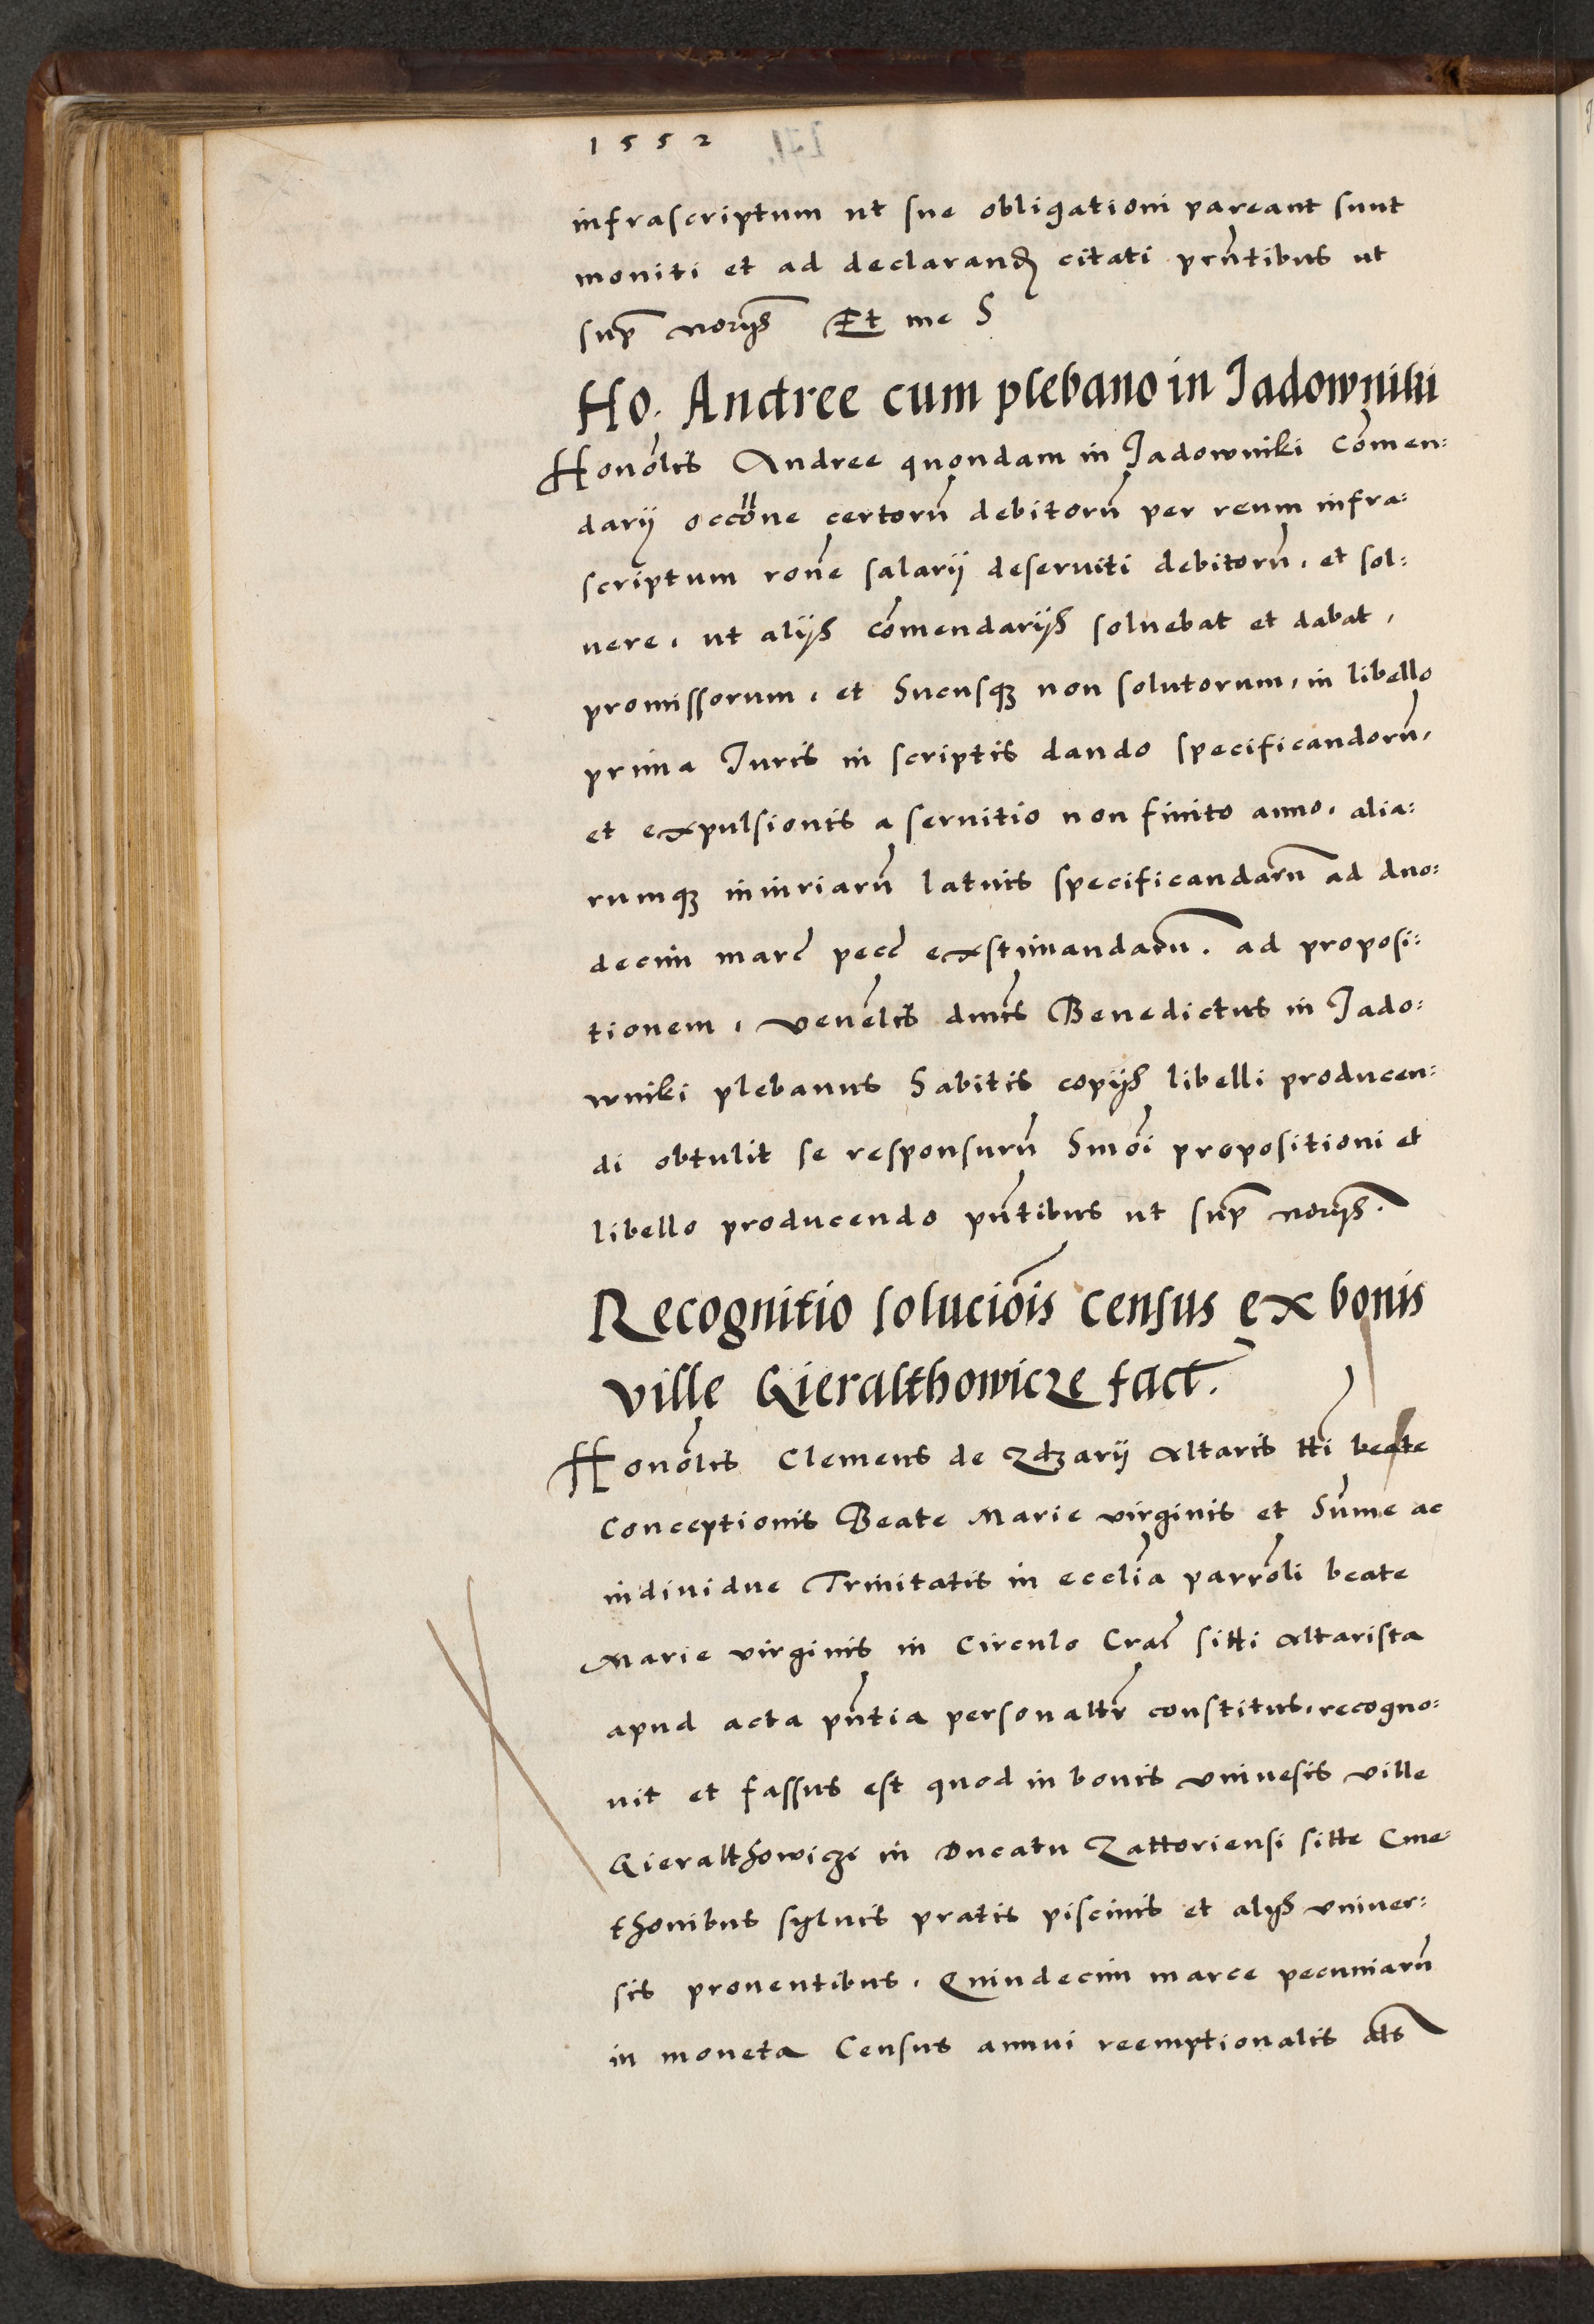 1552
infrascriptum ut sue obligationi pareant sunt
moniti et ad declarand citati prntibus ut
sup norijs Et me S
Ho. Andree cum plebano in Jadowniki
Honolis Andree quondam in Jadowniki Comen:
darij occoone certoru debitoru per reum infra:
scriptum rone salarij deseruiti debitoru, et sol:
uere, ut alijs comendarijs soluebat et dabat,
promissorum, et hucusq; non solutorum, in libello
prima Juris in scriptis dando specificandoru,
et expulsionis a seruitio non finito anno, alia:
rumq; iniuriaru latius specificandaru ad duo:
decim marc pecc exstimandaru. ad proposi:
tionem, venelis dnus Benedictus in Jado:
wniki plebanus habitis copijs libelli producen:
di obtulit se responsuru hmoi propositioni et
libello producendo pntibus ut sup norijs.
Recognitio soluciois census ex bonis
ville Gieralthowicze fact.
Honolis Clemens de Zdzarij Altaris tti beate
Conceptionis Beate Marie virginis et Sume ac
indiuidue Trinitatis in ecclia parroli beate
Marie virginis in Circulo Crac sitti Altarista
apud acta pntia personaltr constitus, recogno:
uit et fassus est quod in bonis vniuesis ville
Gieralthowiczi in Ducatu Zattoriensi sitte Cme:
thonibus syluis pratis piscinis et alys vniuer:
sis prouentibus, Quindecim marce pecuniaru
in moneta Census annui reemptionalis als